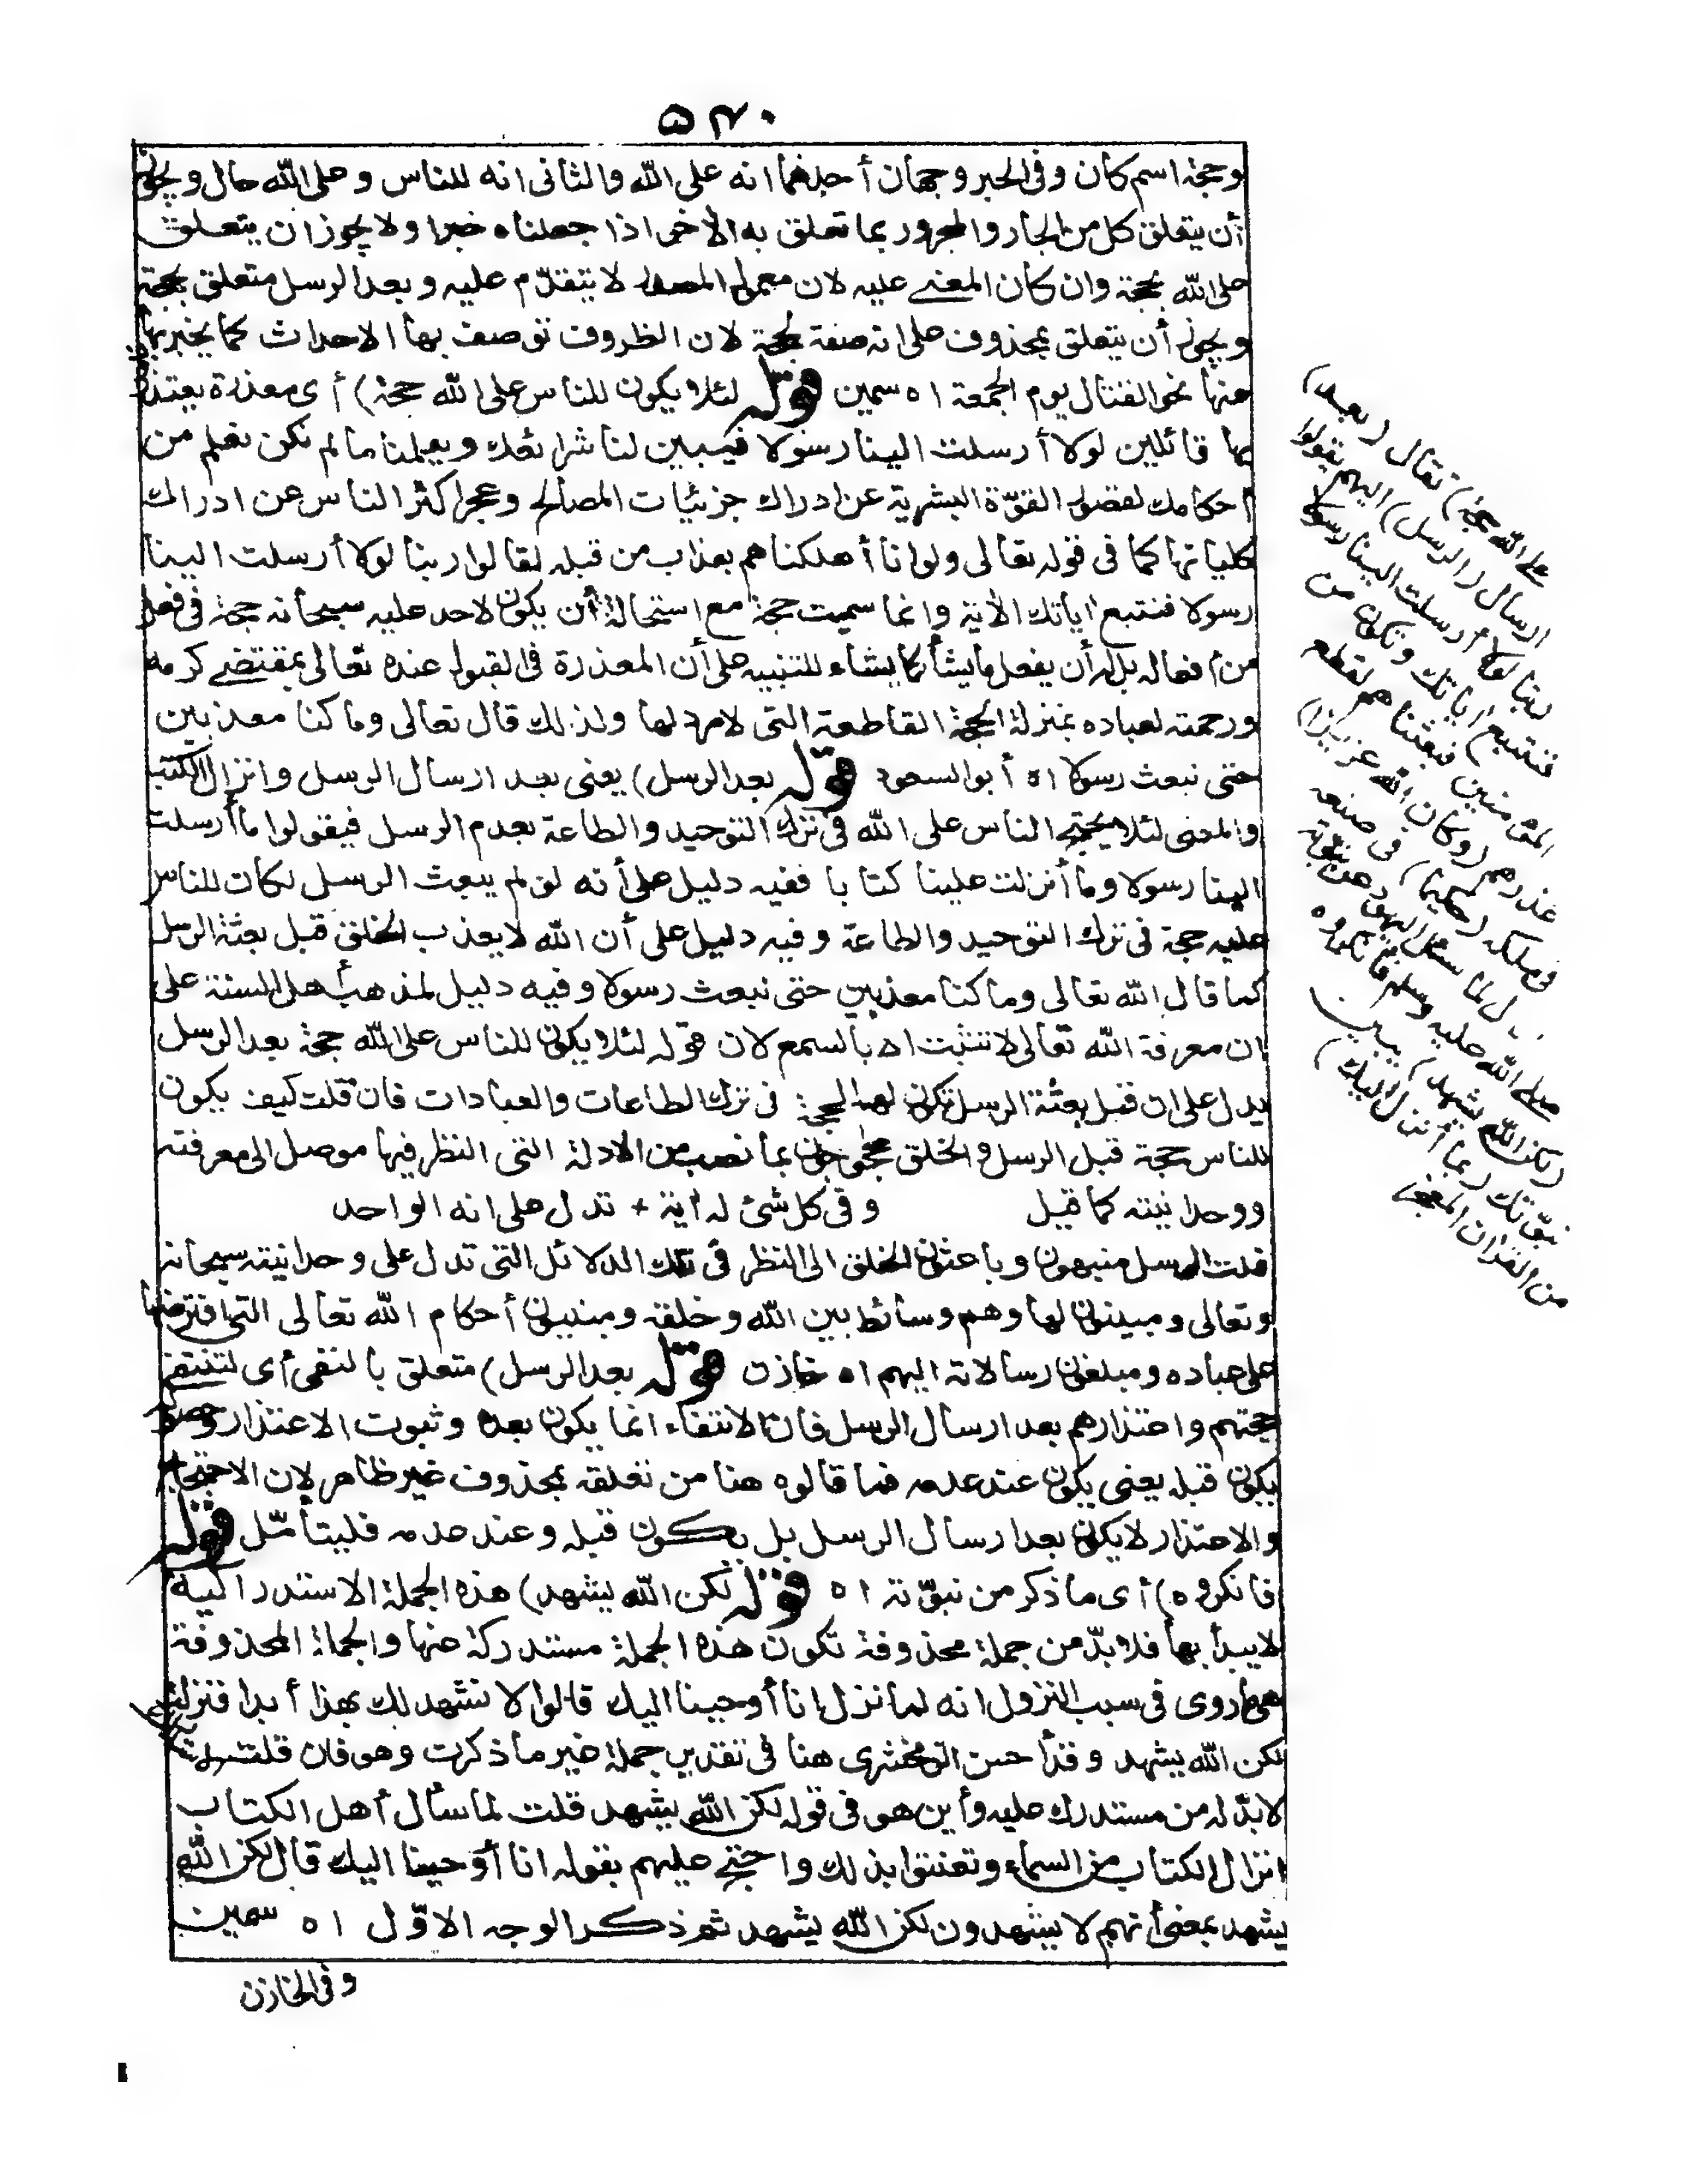 ٥٣٠
وحجة اسم كان وفى الخبر وجهان أحدهما انه على الله والثانى انه للناس وعلى الله حال ويجوز
أن يتعلق كل من الجار والمجرور بما تعلق به الأخر اذا جعلناه خبرا ولا يجوز ان يتعلق
على الله بحجة وان كان المعنى عليه لان معمول المصدر لا يتقدّم عليه وبعد الرسل متعلق بحجة
ويجوز أن يتعلق بمحذوف على انه صفة لحجة لان الظروف توصف بها الاحداث كما يخبر بها
عنها نحو القتال يوم الجمعة اه سمين قوله لئلا يكون للناس على الله حجة) أى معذرة يعتذرون
بها قائلين لولا أرسلت الينا رسولا فيبين لنا شرائعك ويعلمنا ما لم نكن نعلم من
أحكامك لقصور القوّة البشرية عن ادراك جزئيات المصالح وعجز اكثر الناس عن ادراك
كلياتها كما فى قوله تعالى ولو انا أهلكناهم بعذاب من قبله لقالوا ربنا لولا أرسلت الينا
رسولا فنتبع اياتك الأية وانما سميت حجة مع استحالة أن يكون لاحد عليه سبحانه حجة فى فعل
من أفعاله بل له أن يفعل ما يشأ كما يشاء للتنبيه على أن المعذرة فى القبول عنده تعالى بمقتضى كرمه
ورحمته لعباده بمنزلة الحجة القاطعة التى لا مرد لها ولذلك قال تعالى وما كنا معذبين
حتى نبعث رسولا اه أبو السعود قوله بعد الرسل) يعنى بعد ارسال الرسل وانزال الكتب
والمعنى لئلا يحتج الناس على الله فى ترك التوحيد والطاعة بعدم الرسل فيقولوا ما أرسلت
الينا رسولا وما أنزلت علينا كتابا ففيه دليل على أنه لو لم يبعث الرسل لكان للناس
عليه حجة فى ترك التوحيد والطاعة وفيه دليل على أن الله لا يعذب الخلق قبل بعثة الرسل
كما قال الله تعالى وما كنا معذبين حتى نبعث رسولا وفيه دليل لمذهب أهل السنة على
ان معرفة الله تعالى لا تثبت الا بالسمع لان قوله لئلا يكون للناس على الله حجة بعد الرسل
يدل على ان قبل بعثة الرسل تكون لهم الحجة فى ترك الطاعات والعبادات فان قلت كيف يكون
للناس حجة قبل الرسل والخلق محجوجون بما نصب من الادلة التى النظر فيها موصل الى معرفته
ووحدانيته كما قيل وفى كل شئ له أية + تدل على انه الواحد
قلت الرسل منبهون وباعثون الخلق الى النظر فى تلك الدلائل التى تدل على وحدانيته سبحانه
وتعالى ومبينون لها وهم وسائط بين الله وخلقه ومبينون أحكام الله تعالى التى افترضها
على عباده ومبلغون رسالاته اليهم اه خازن قوله بعد الرسل) متعلق بالنفى أى لتنتفى
حجتهم واعتذارهم بعد ارسال الرسل فان الانتفاء انما يكون بعده وثبوت الاعتذار
يكون قبله يعنى يكون عند عدمه فما قالوه هنا من تعلقه بمحذوف غير ظاهر لان الاحتجاج
والاعتذار لا يكون بعد ارسال الرسل بل يكون قبله وعند عدمه فليتأمّل قوله
فانكروه) أى ما ذكر من نبوّته اه قوله لكن الله يشهد) هذه الجملة الاستدراكية
لا يبدأ بها فلا بدّ من جملة محذوفة تكون هذه الجملة مستدركة عنها والجملة المحذوفة
هى ما روى فى سبب النزول انه لما نزل انا أوحينا اليك قالوا لا نشهد لك بهذا أبدا فنزلت
لكن الله يشهد وقد أحسن الزمخشرى هنا فى تقدير جملة غير ما ذكرت وهو فان قلت
لا بدّ له من مستدرك عليه وأين هو فى قوله لكن الله يشهد قلت لما سأل أهل الكتاب
انزال الكتاب من السماء وتعنتوا بذلك واحتج عليهم بقوله انا أوحينا اليك قال لكن الله
يشهد بمعنى أنهم لا يشهدون لكن الله يشهد ثم ذكر الوجه الاوّل اه سمين
وفى الخازن
على الله حجة) تقال (بعد)
ارسال (الرسل) اليهم يقولوا
ربنا لولا أرسلت الينا رسولا
فنتبع اياتك ونكون من
المؤمنين فبعثناهم لقطع
عذرهم (وكان الله عزيزا)
فى ملكه (حكيما) فى صنعه
لما سئل اليهود عن نبوّته
صلى الله عليه وسلم فأنكروه
(لكن الله يشهد) يبين
نبوّتك (بما أنزل اليك)
من القرأن المعجز